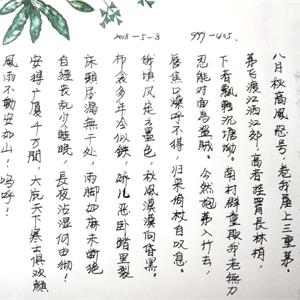 2018-5-8
999-405.
八月秋高風怒号，卷我屋上三重茅。
茅飞渡江洒江郊，高者挂罥長林梢，
下者飄轉沉塘坳。南村群童欺我老無力
忍能对面为盗賊。公然抱茅入竹去，
唇焦口燥呼不得，归来倚杖自叹息。
俄頃风定云墨色，秋风漠漠向昏黑。
布衾多年冷似鉄，娇儿恶卧踏里裂
床頭屋漏無干处，雨脚如麻未断绝
自經喪乱少睡眠，長夜沾濕何由徹！
安得广厦千万間，大庇天下寒士俱欢颜
風雨不動安如山！嗚呼！